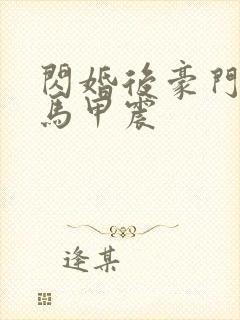 閃婚後豪門
馬甲震
逢某